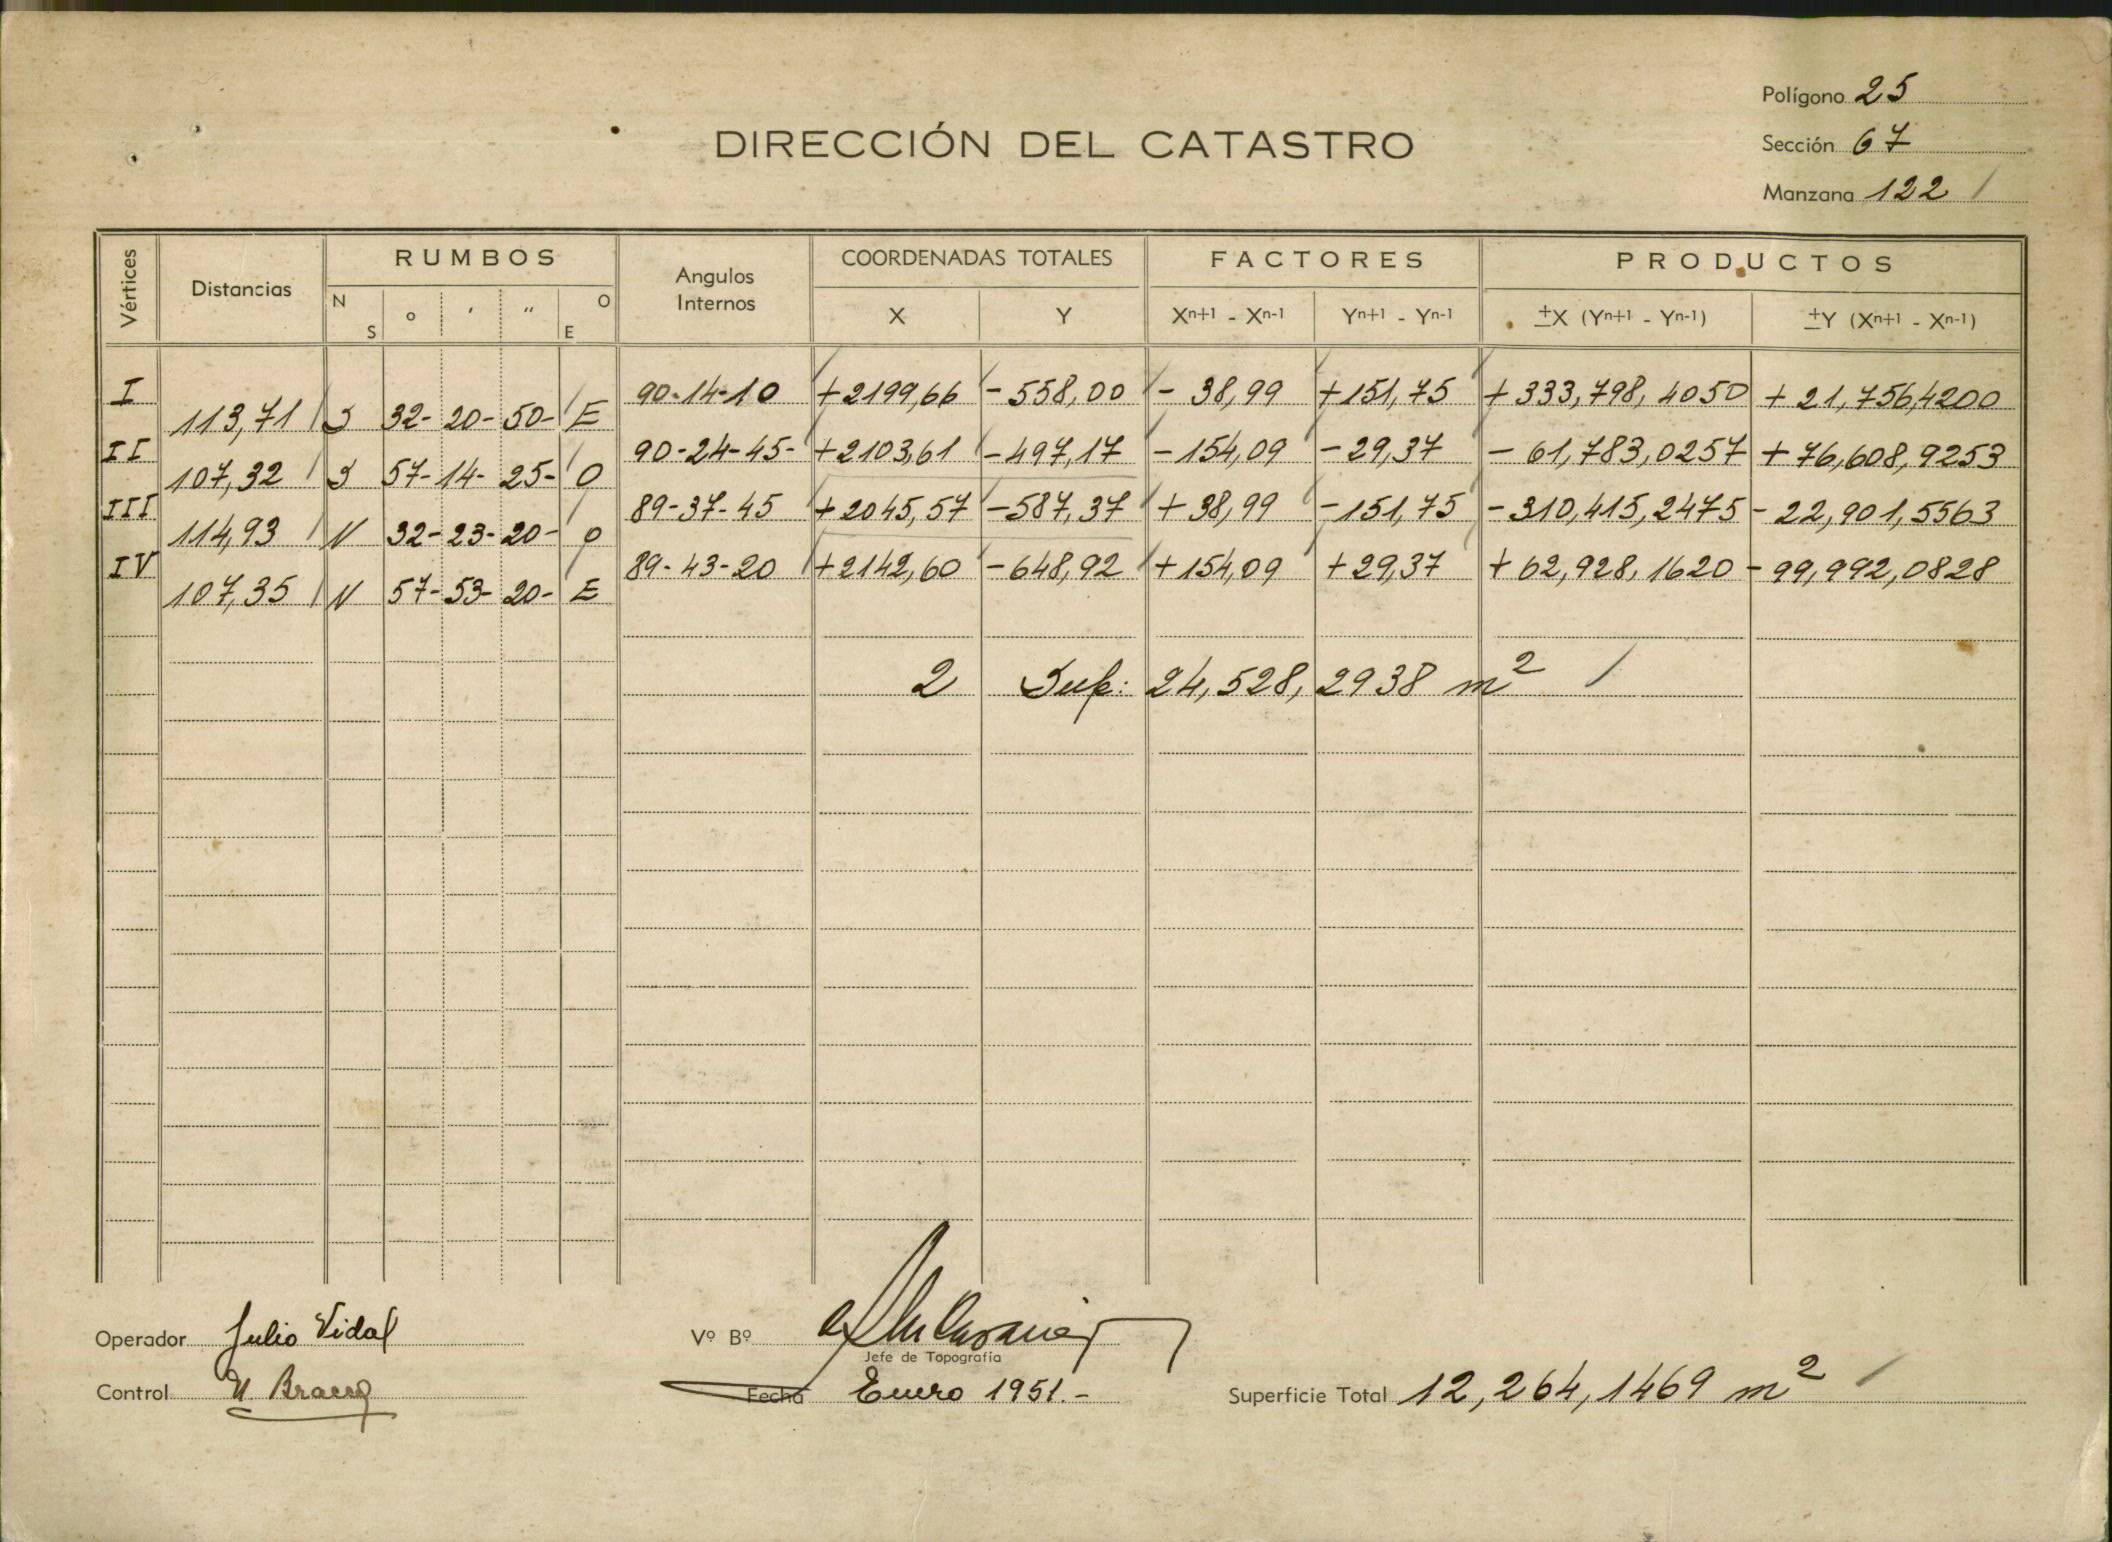 Polígono 25
DIRECCIÓN DEL CATASTRO
Sección 67
Manzana 122
Vértices Distancias RUMBOS Angulos Internos COORDENADAS TOTALES FACTORES PRODUCTOS
N S ° ' " O E X Y Xn+1 - Xn-1 Yn+1 - Yn-1 ±X (Yn+1 - Yn-1) ±Y (Xn+1 - Xn-1)
I 90-14-10 +2199,66 -558,00 - 38,99 +151,75 + 333,798,4050 + 21,756,4200
113,71 S 32- 20- 50- E
II 90-24-45- +2103,61 -497,17 -154,09 -29,37 - 61,783,0257 + 76,608,9253
107,32 S 57- 14- 25- O
III 89-37-45 +2045,57 -587,37 +38,99 -151,75 -310,415,2475 - 22,901,5563
114,93 N 32- 23- 20- O
IV 89-43-20 +2142,60 -648,92 +154,09 +29,37 + 62,928,1620 - 99,992,0828
107,35 N 57- 53- 20- E
2 Sup: 24,528,2938 m2
Operador Julio Vidal
Vº Bº
Jefe de Topografía
Control
Fecha Enero 1951.-
Superficie Total 12,264,1469 m2